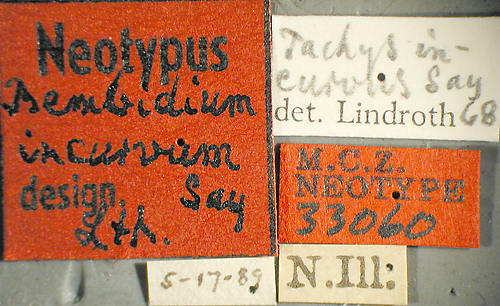 Neotypus
Bembidium
incurvum
design. Say
Lth.
Tachys in-
curvus Say
det. Lindroth 68
M.C.Z.
NEOTYPE
33060
5-17-89
N.Ill: